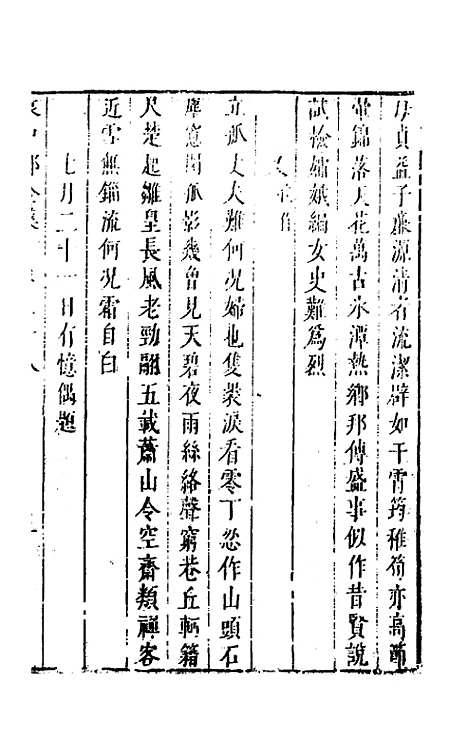 母貞益子廉源清者流潔辟如干霄筠稚筍亦高節
錦落天花萬古氷潭熱鄉邦傳盛事似作昔賢說
試撿嬬嫉編女史難為烈
立孤丈夫難何況婦也隻裳淚看零丁忿作山頭石
意閑孤影幾曾見天碧夜雨絲絡聲窮巷丘軻籍
尺楚起雛皇長風老勁翮五載蕭山令空齋類禪客
近雪無緇流何況霜自白
七月二十一日有憶偶題
袁中郎全集